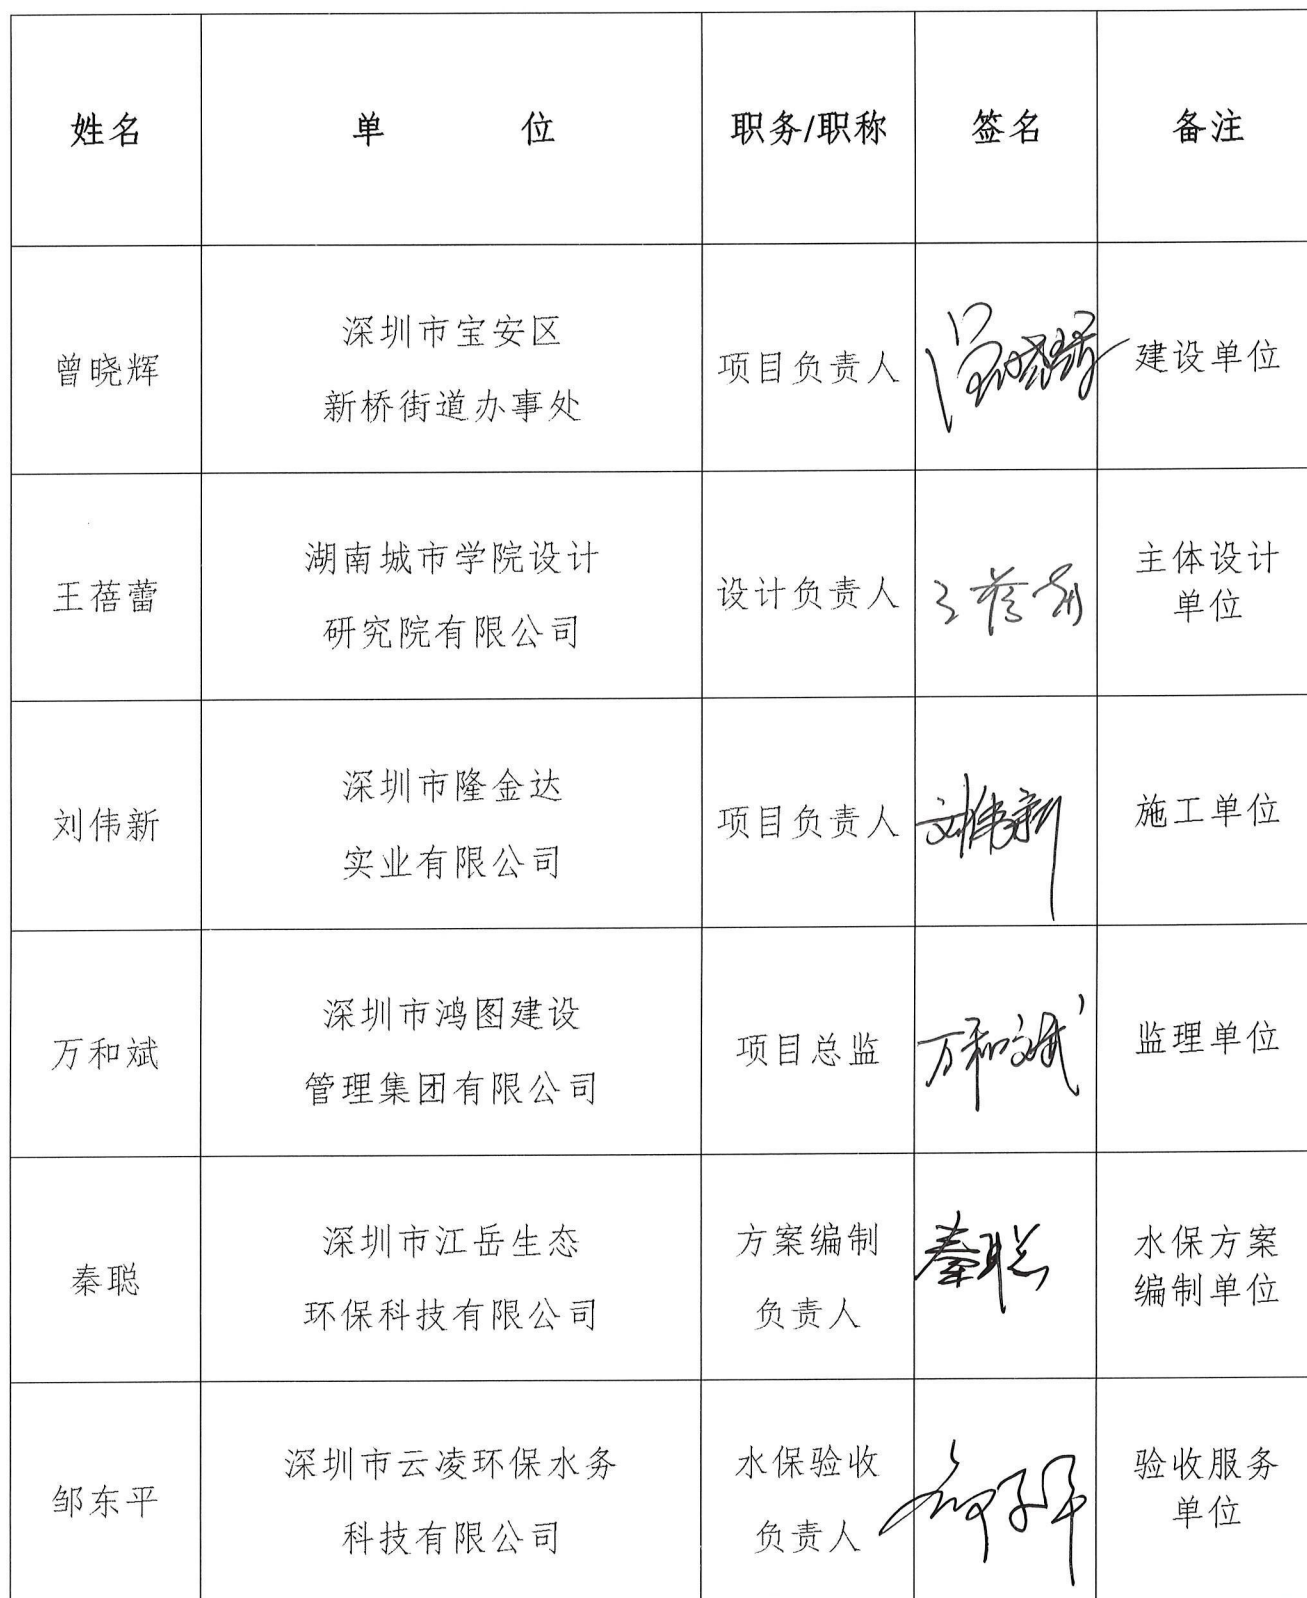 姓名 单 位 职务/职称 签名 备注
曾晓辉
深圳市宝安区
新桥街道办事处
项目负责人
建设单位
王蓓蕾
湖南城市学院设计
研究院有限公司
设计负责人
主体设计
单位
刘伟新
深圳市隆金达
实业有限公司
项目负责人
刘伟新
施工单位
万和斌
深圳市鸿图建设
管理集团有限公司
项目总监
万和斌
监理单位
秦聪
深圳市江岳生态
环保科技有限公司
方案编制
负责人
秦聪
水保方案
编制单位
邹东平
深圳市云凌环保水务
科技有限公司
水保验收
负责人
验收服务
单位